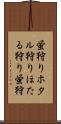 螢狩りホタ
ル狩りほた
る狩り蛍狩